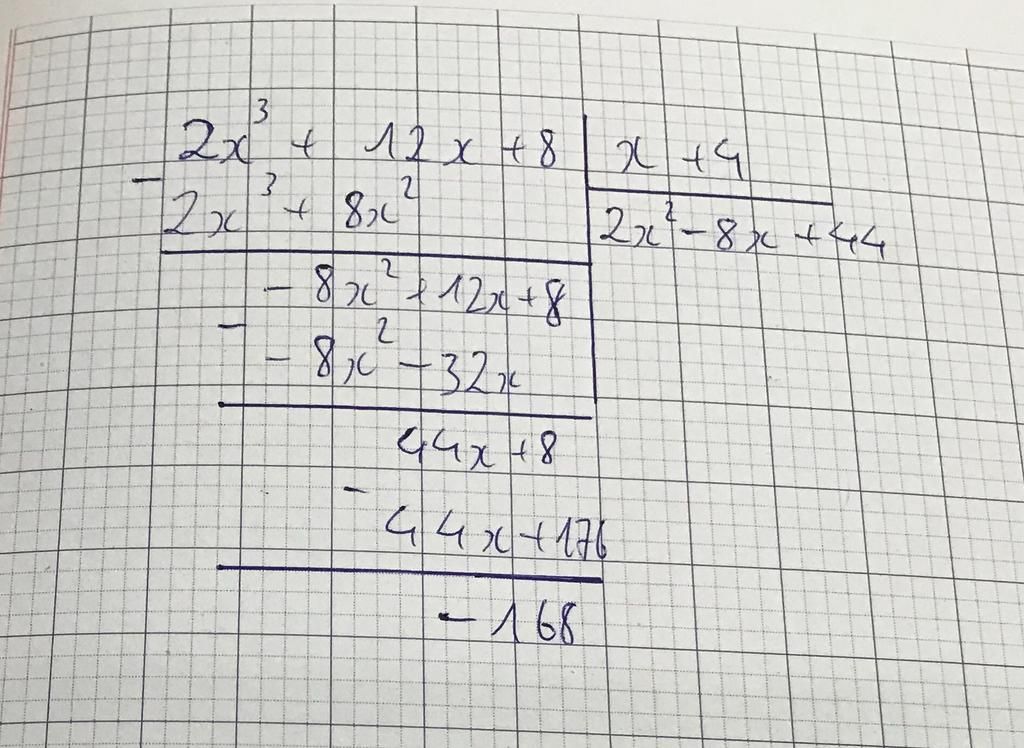 2x³ + 12x + 8 | x + 4
- 2x³ + 8x² | 2x² - 8x + 44
- 8x² + 12x + 8
- - 8x² - 32x
44x + 8
- 44x + 176
- 168